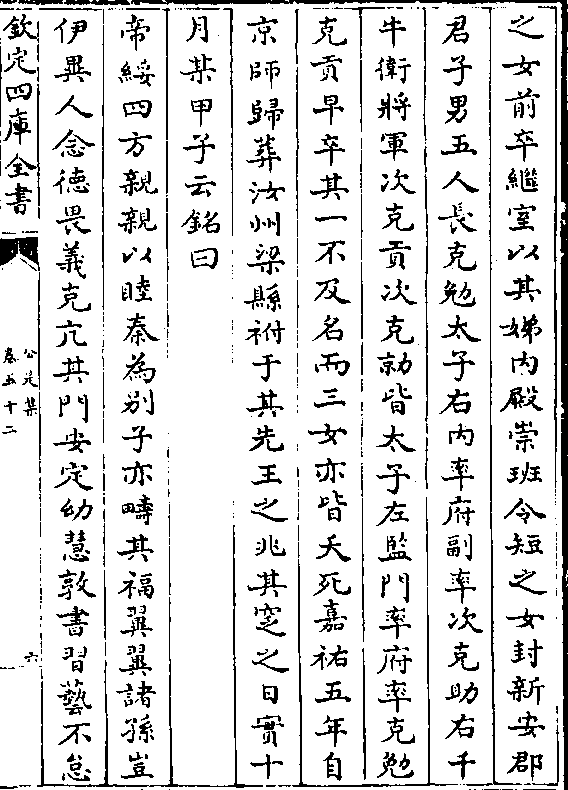 之女前卒繼室以其娣内殿崇班令短之女封新安郡
君子男五人長克勉太子右内率府副率次克助右千
牛衛將軍次克貢次克勍皆太子左監門率府率克勉
克貢早卒其一不及名而三女亦皆夭死嘉祐五年自
京師歸葬汝州梁縣祔于其先王之兆其窆之日實十
月某甲子云銘曰
帝綏四方親親以睦秦為别子亦疇其福翼翼諸孫豈
伊異人念徳畏義克亢其門安定幼慧敦書習藝不怠
欽定四庫全書
公是集
卷五十二
六